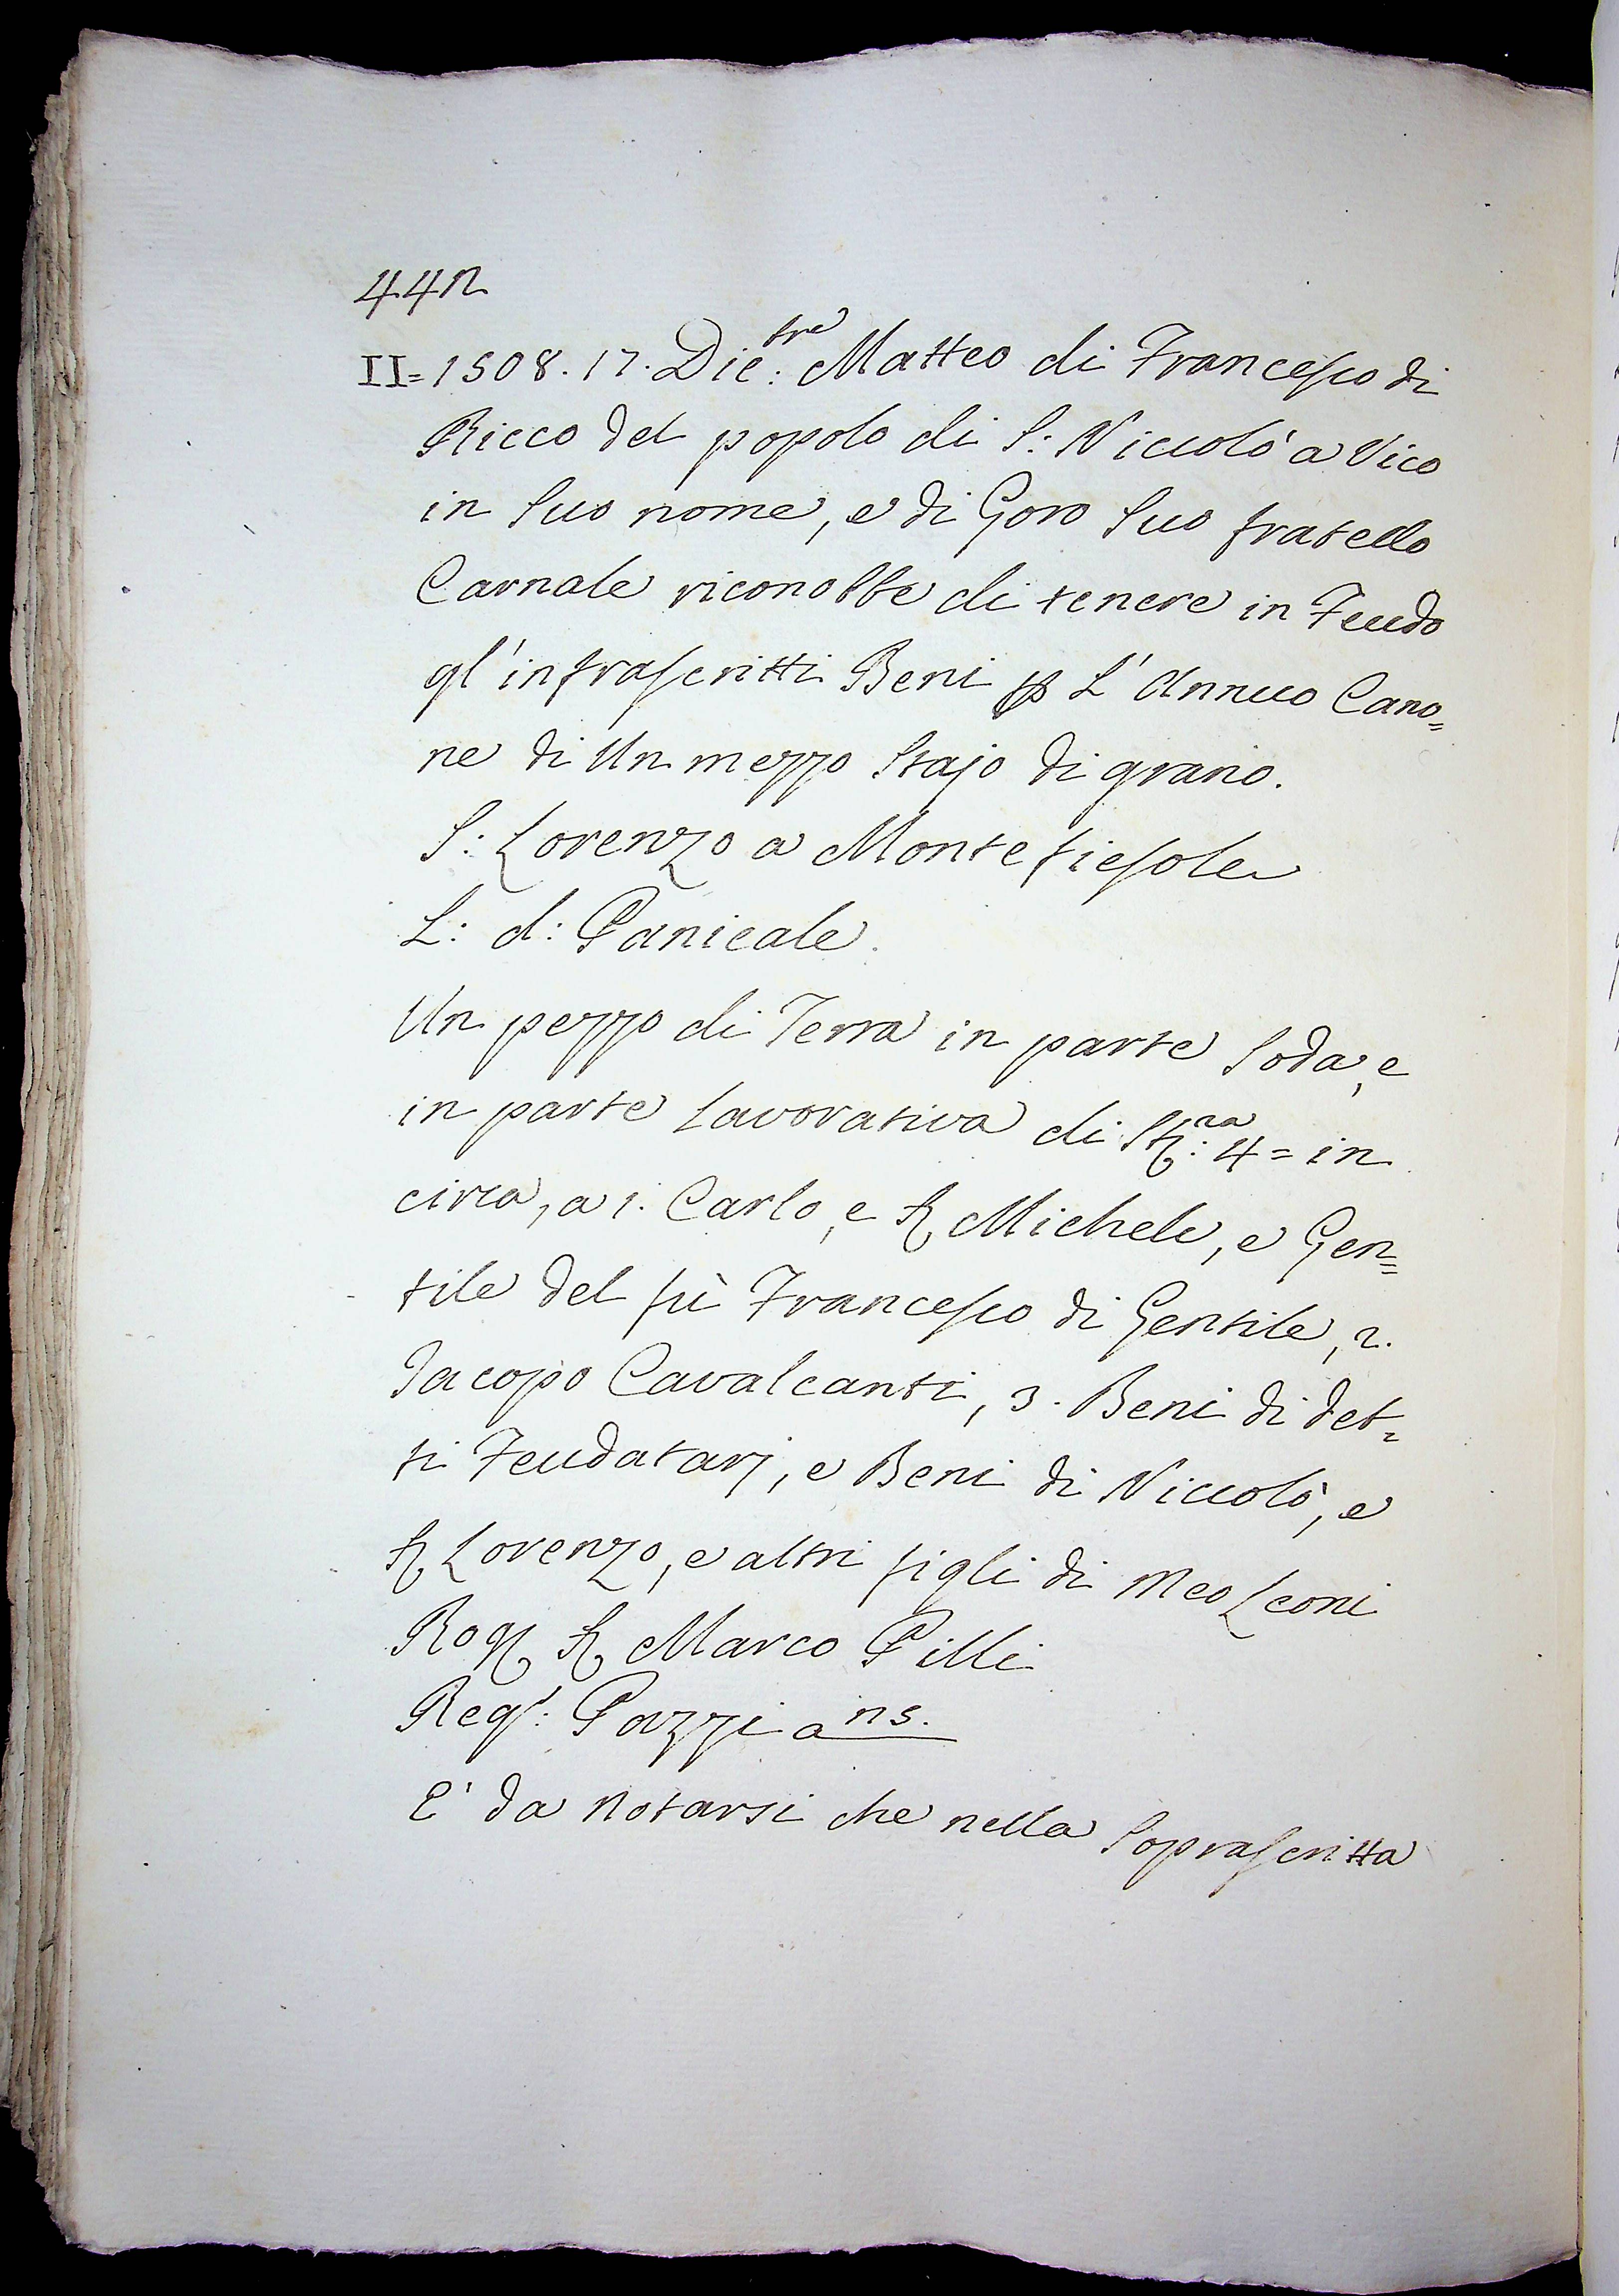 442
II=1508. 17. Dic:bre Matteo di Francesco di
Ricco del popolo di S: Niccolò a Vico
in Suo nome, e di Goro Suo fratello
Carnale riconobbe di tenere in Feudo
gl'infrascritti Beni p L'Annuo Cano=
ne di Un mezzo Stajo di grano.
S: Lorenzo a Monte fiesole
L: d: Panicale.
Un pezzo di Terra in parte Soda, e
in parte Lavorativa di St:ra 4 = in
circa, a 1. Carlo, e S Michele, e Gen=
tile del fù Francesco di Gentile, 2.
Jacopo Cavalcanti, 3. Beni di det=
ti Feudatarj, e Beni di Niccolò, e
S Lorenzo, e altri figli di Meo Leoni
Rog S Marco Pilli
Regs: Pazzi a ns.
E' da Notarsi che nella Soprascritta